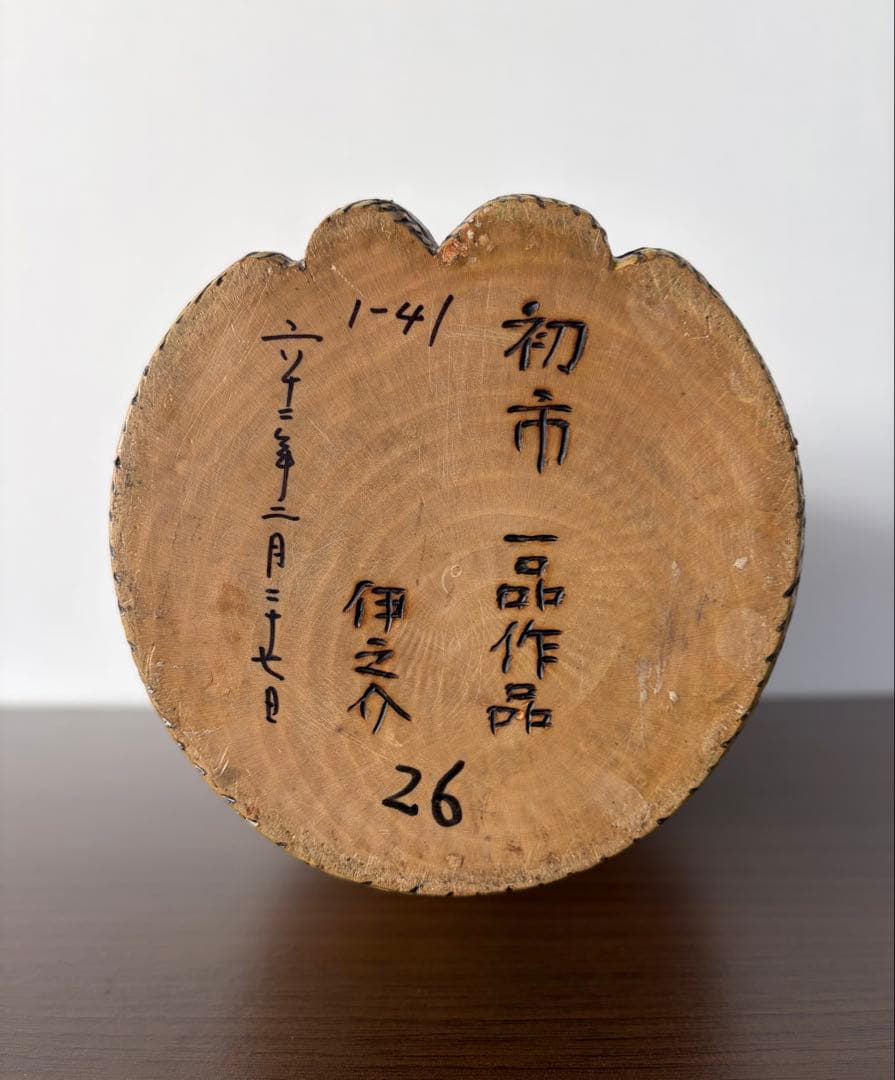 初市 一品作品
伊之介
26
1-41
六十二年二月二十七日